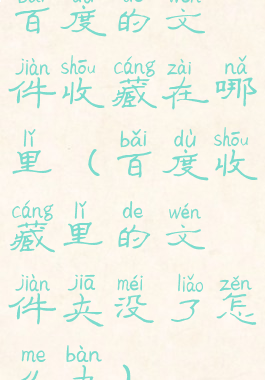 百度的文
jiàn shōu cáng zài nǎ
件收藏在哪
lǐ bǎi dù shōu
里（百度收
cáng lǐ de wén
藏里的文
jiàn jiā méi liǎo zěn
件夹没了怎
me bàn